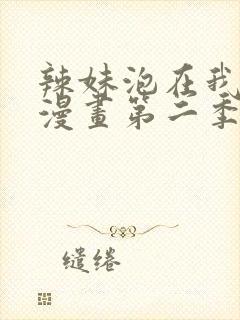 辣妹泡在我
漫畫第二季
缱绻